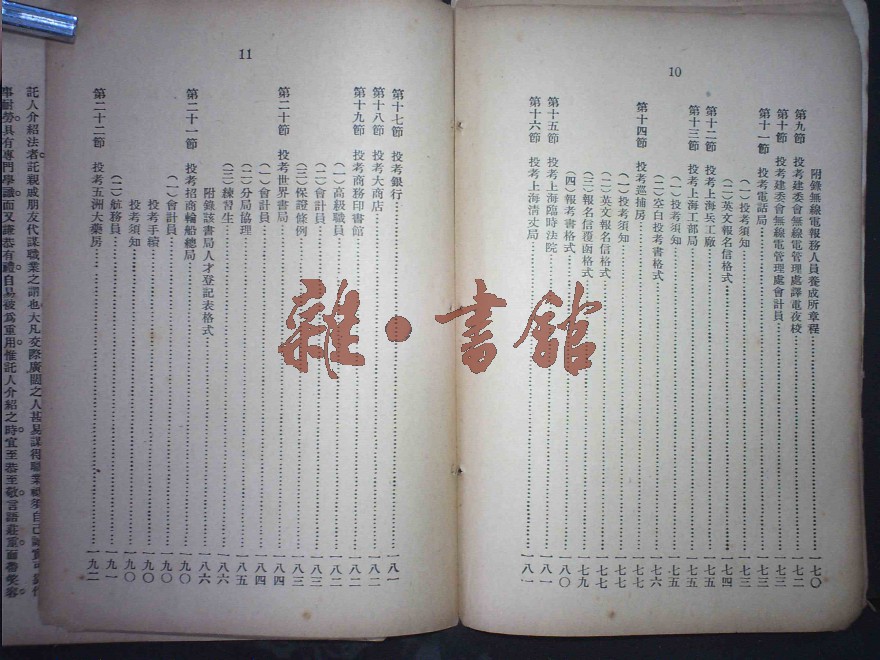 10
附錄無線電報務人員養成所章程……一七〇
第九節 投考建委會無線電管理處譯電夜校……一七二
第十節 投考建委會無線電管理處會計員……一七三
第十一節 投考電話局……一七三
(一)投考須知……一七三
(二)英文報名信格式……一七四
第十二節 投考上海兵工廠……一七五
第十三節 投考上海工部局……一七五
(一)投考須知……一七五
(二)空白投考書格式……一七六
第十四節 投考巡捕房……一七七
(一)投考須知……一七七
(二)英文報名信格式……一七七
(三)報名信覆函格式……一七九
(四)報考書格式……一八〇
第十五節 投考上海臨時法院……一八一
第十六節 投考上海清丈局……一八一
11
第十七節 投考銀行……一八一
第十八節 投考大商店……一八二
第十九節 投考商務印書館……一八二
(一)高級職員……一八二
(二)會計員……一八三
(三)保證條例……一八三
第二十節 投考世界書局……一八四
(一)會計員……一八四
(二)分局協理……一八五
(三)練習生……一八六
附錄該書局人才登記表格式……一八六
第二十一節 投考招商輪船總局……一九〇
(一)會計員……一九〇
投考手續……一九〇
投考須知……一九〇
(二)航務員……一九一
第二十二節 投考五洲大藥房……一九二
託人介紹法者託親戚朋友代謀職業之謂也大凡交際廣闊之人甚易謀得職業
事耐勞。具有專門學識而又謙恭有禮。自易被爲重用。惟託人介紹之時。宜至恭至敬。言語莊重。
雜·書館